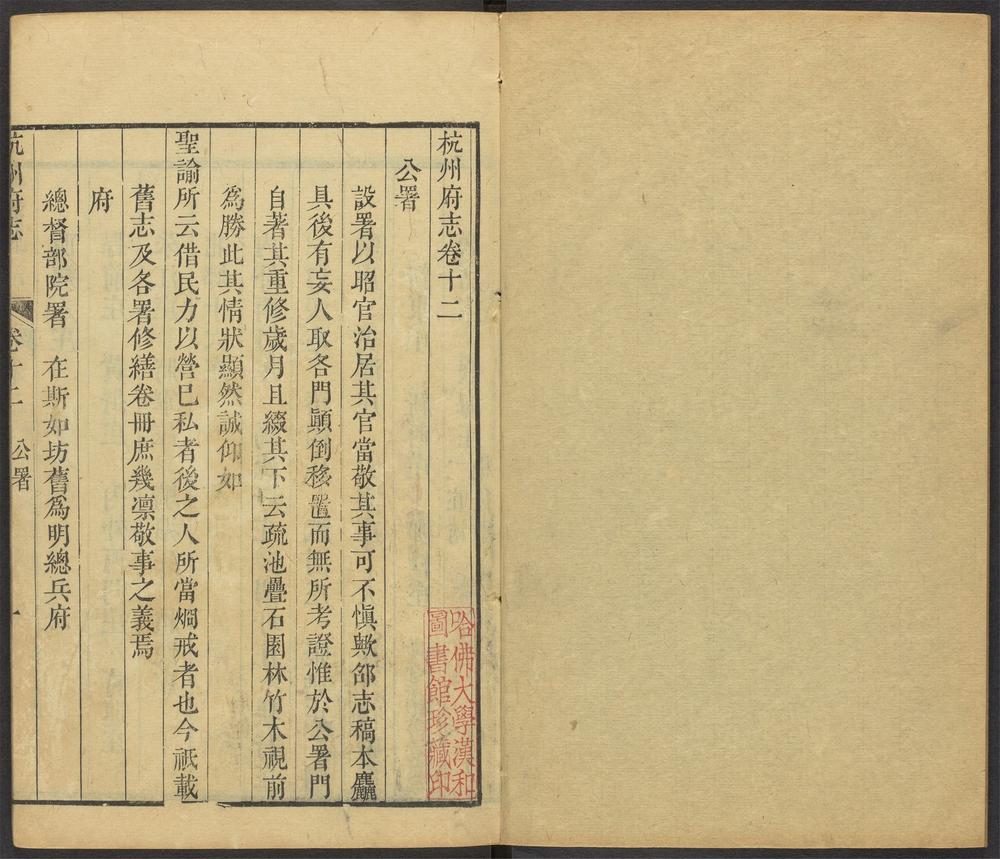 杭州府志卷十二
公署
設署以昭官治居其官當敬其事可不慎歟邵志稿本麤
具後有妄人取各門顚倒移置而無所考證惟於公署門
自著其重修歲月且綴其下云疏池疊石園林竹木視前
爲勝此其情狀顯然誠仰如
聖諭所云借民力以營已私者後之人所當烱戒者也今祇載
舊志及各署修繕卷冊庶幾凛敬事之義焉
府
總督部院署 在斯如坊舊爲明總兵府
杭州府志 卷十二 公署 一
哈佛大學漢和
圖書館珍藏印